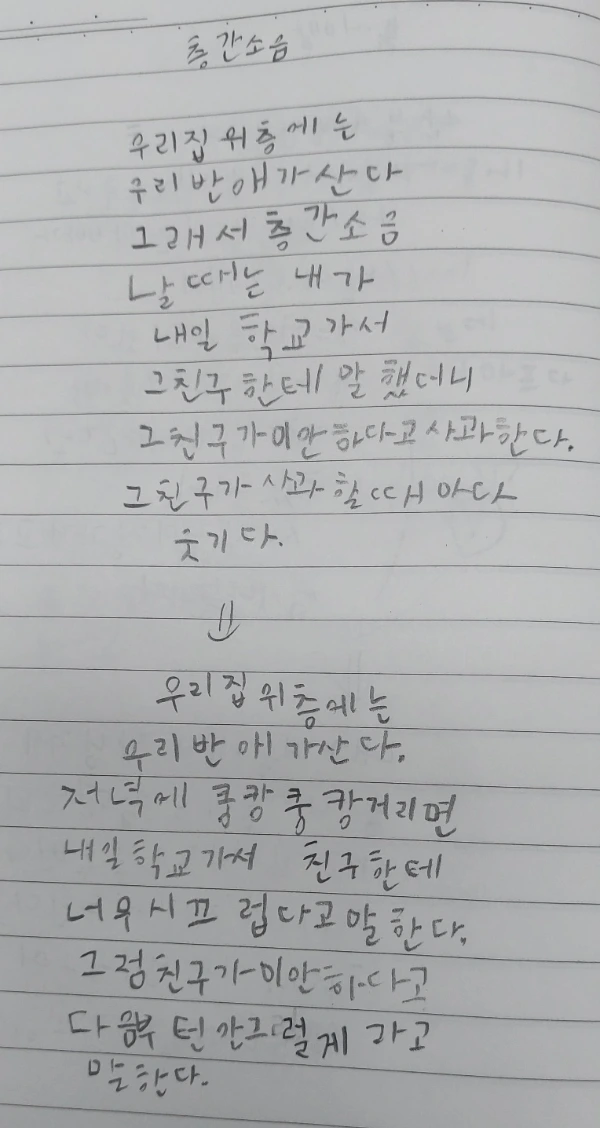 층간소음
우리집 위층에는
우리 반 애가 산다
그래서 층간소음
날 때는 내가
내일 학교가서
그친구한테 말 했더니
그친구가 미안하다고 사과한다.
그친구가 사과할때 마다
웃기다.
우리집 위층에는
우리 반 애가산다.
저녁에 쿵캉쿵캉거리면
내일학교가서 친구한테
너무시끄럽다고말한다.
그럼친구가미안하다고
다음부턴 안그럴게 라고
말한다.